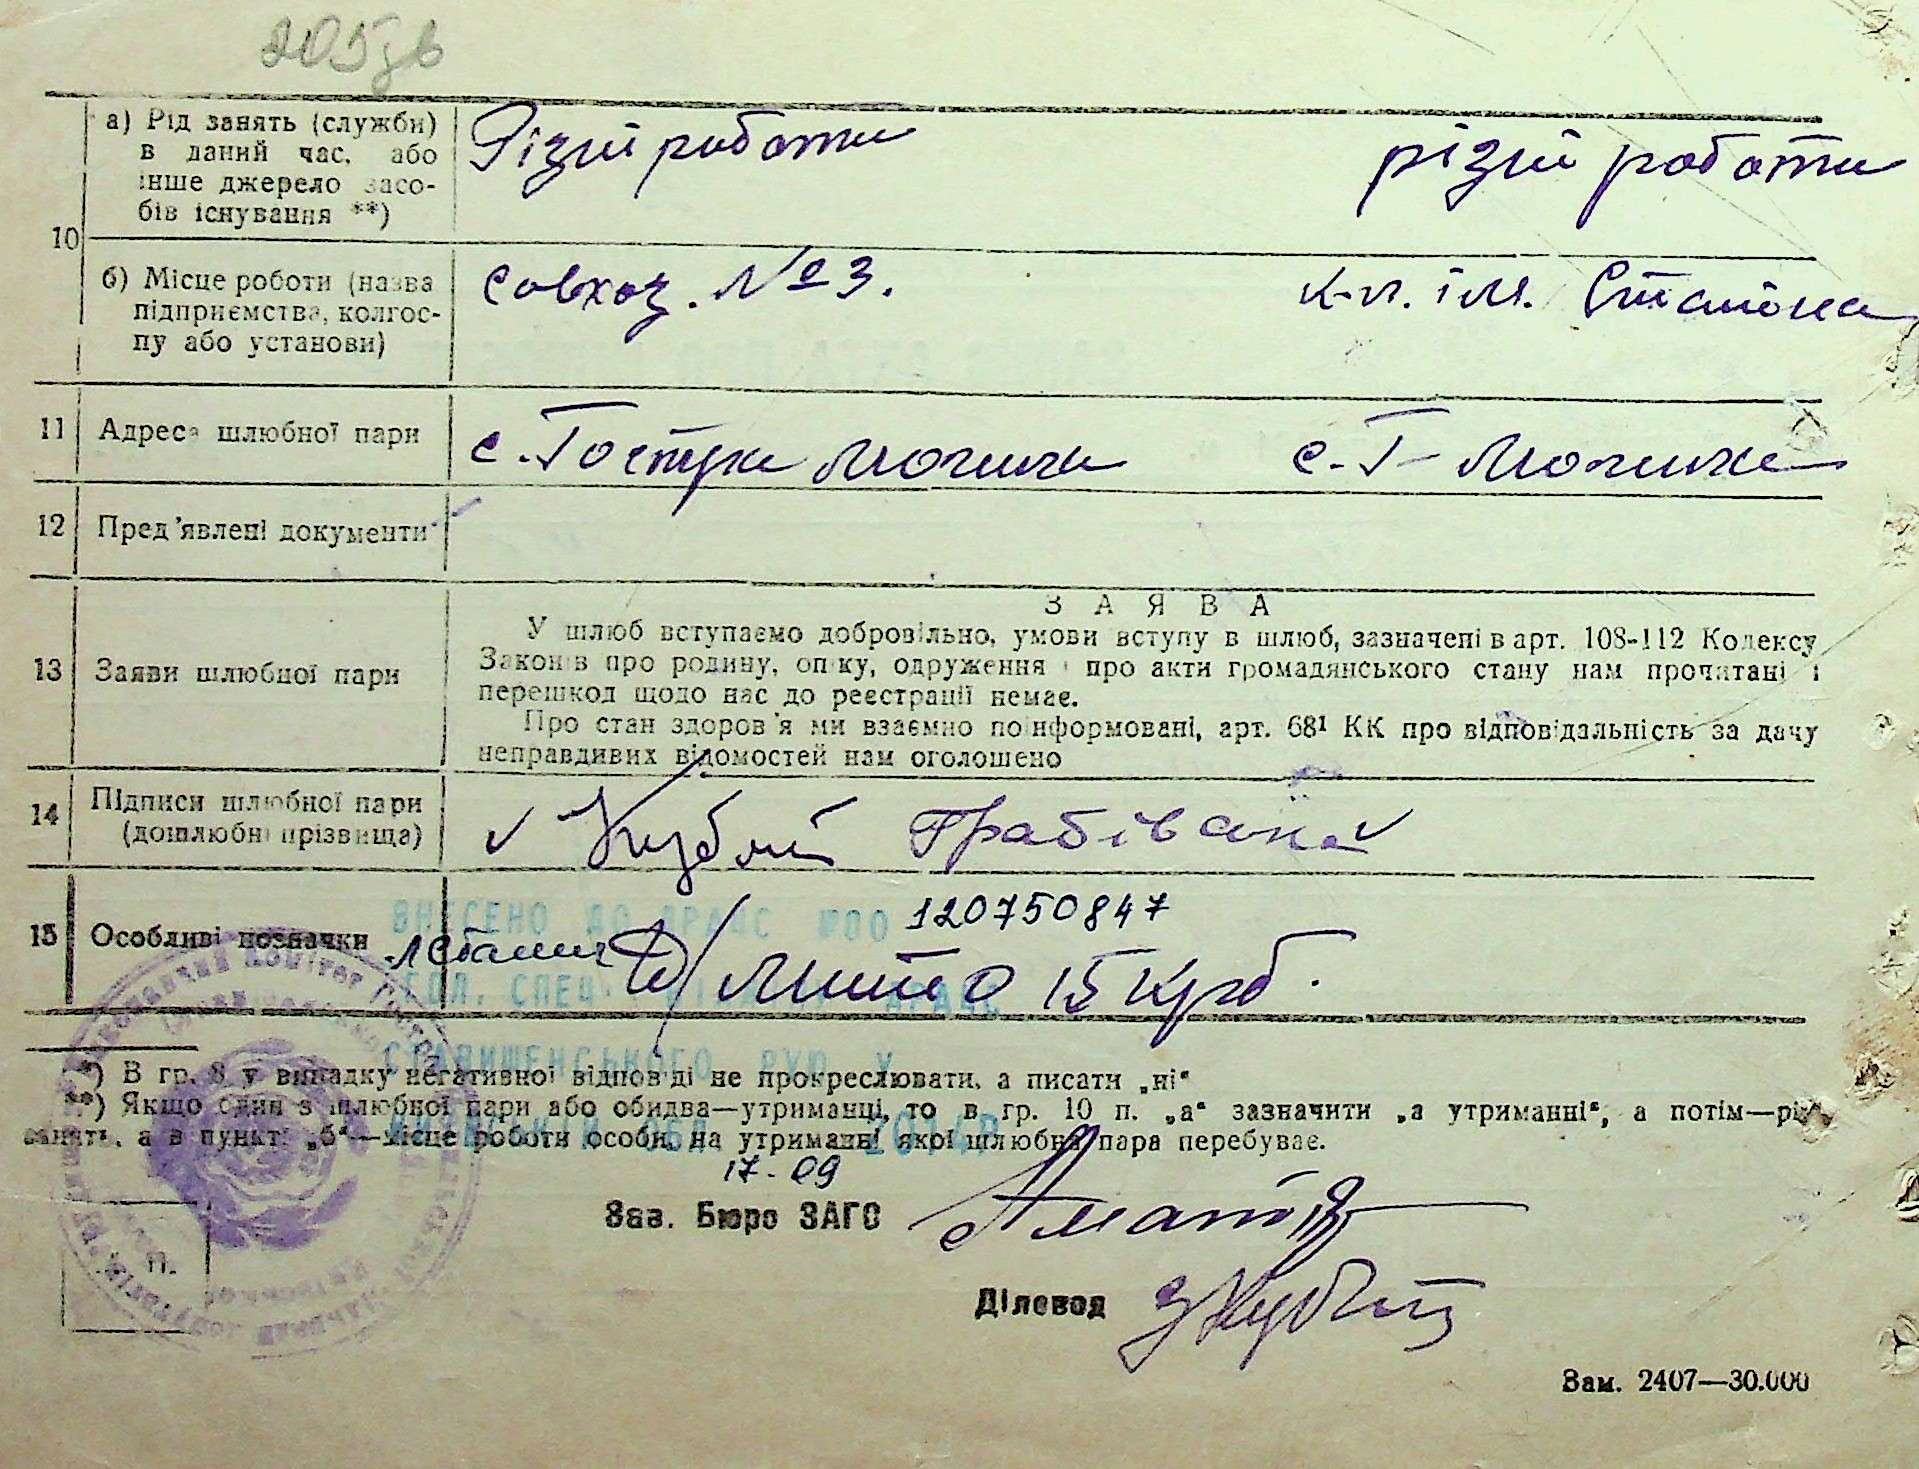 205зв
10
а) Рід занять (служби) в даний час, або інше джерело засобів існування **)
Різні роботи
різні роботи
б) Місце роботи (назва підприємства, колгоспу або установи)
Совхоз. №3.
к-п. ім. Сталіна
11
Адреса шлюбної пари
с. Гостра Могила
с. Г- Могила
12
Пред'явлені документи
13
Заяви шлюбної пари
ЗАЯВА
У шлюб вступаємо добровільно, умови вступу в шлюб, зазначені в арт. 108-112 Кодексу
Законів про родину, опіку, одруження і про акти громадянського стану нам прочитані і
перешкод щодо нас до реєстрації немає.
Про стан здоров'я ми взаємно поінформовані, арт. 68¹ КК про відповідальність за дачу
неправдивих відомостей нам оголошено
14
Підписи шлюбної пари (дошлюбні прізвища)
Грабівська
15
Особливі позначки
ВНЕСЕНО ДО ДРАЦС №00 120750847
Мито 15 крб.
СТАВИЩЕНСЬКОГО РУЮ У
*) В гр. 8 у випадку негативної відповіді не прокреслювати, а писати „ні“
**) Якщо один з шлюбної пари або обидва—утриманці, то в гр. 10 п. „а“ зазначити „а утриманні“, а потім—рід
занять, а в пункті „б“—місце роботи особи, на утриманні якої шлюбна пара перебуває.
17-09
2014Р
Зав. Бюро ЗАГС
Діловод
Зам. 2407—30.000